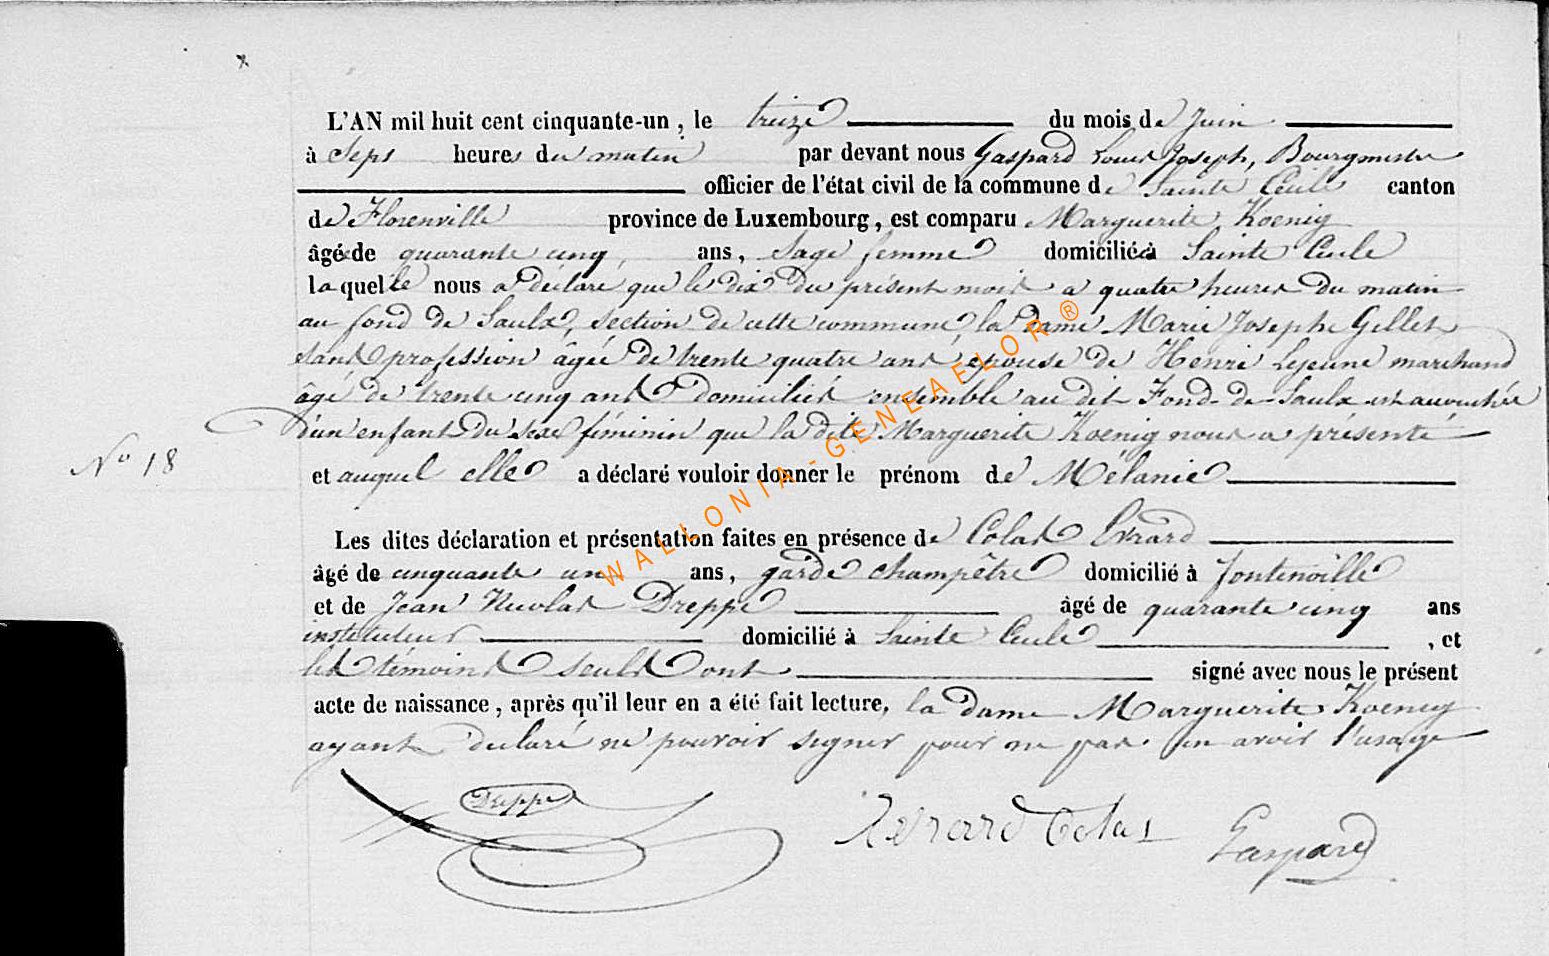 L'AN mil huit cent cinquante-un, le treize du mois de Juin
à Sept heures du matin par devant nous Gaspard Louis Joseph, Bourgmestre
officier de l'état civil de la commune de Sainte Cécile canton
de Florenville province de Luxembourg, est comparu Marguerite Koenig
âgée de quarante cinq ans, Sage femme domiciliée à Sainte Cécile
laquelle nous a déclaré que le dix du présent mois a quatre heures du matin
au fond de Saulx, section de cette commune, la dame Marie Josephe Gillet
sans profession âgée de trente quatre ans, épouse de Henri Lejeune marchand
âgé de trente cinq ans domiciliés ensemble au dit Fond-de-Saulx est accouchée
d'un enfant du sexe féminin que la dite Marguerite Koenig nous a présenté
No 18
et auquel elle a déclaré vouloir donner le prénom de Mélanie
Les dites déclaration et présentation faites en présence de Colas Evrard
âgé de cinquante un ans, garde champêtre domicilié à Fontenoille
et de Jean Nicolas Dreppe âgé de quarante cinq ans
instituteur domicilié à Sainte Cécile , et
les témoins seuls ont signé avec nous le présent
acte de naissance, après qu'il leur en a été fait lecture, la dame Marguerite Koenig
ayant déclaré ne pouvoir signer pour ne pas en avoir l'usage
Dreppe Evrard Colas Gaspard
WALLONIA-GENEAFLOR®